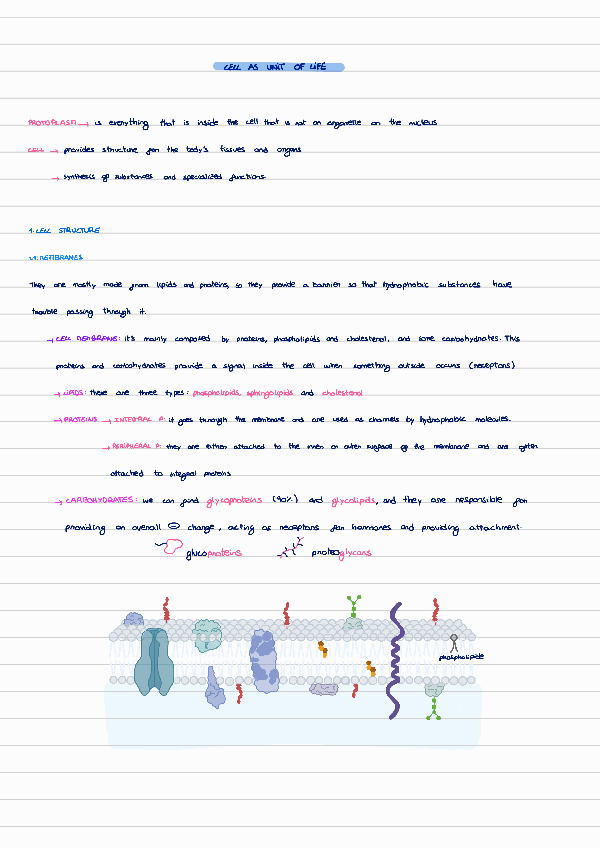 CELL AS UNIT OF LIFE
PROTOPLASM → is everything that is inside the cell that is not an organelle or the nucleus
CELL → provides structure for the body's tissues and organs
→ synthesis of substances and specialized functions.
1. CELL STRUCTURE
1.1. MEMBRANES
They are mostly made from lipids and proteins, so they provide a barrier so that hydrophobic substances have
trouble passing through it.
→ CELL MEMBRANE: it's mainly composed by proteins, phospholipids and cholesterol, and some carbohydrates. This
proteins and carbohydrates provide a signal inside the cell when something outside occurs (receptors)
→ LIPIDS: there are three types: phospholipids, sphingolipids and cholesterol
→ PROTEINS → INTEGRAL P: it goes through the membrane and are used as channels by hydrophobic molecules.
→ PERIPHERAL P: they are either attached to the inner or outer surface of the membrane and are often
attached to integral proteins
→ CARBOHYDRATES: we can find glycoproteins (90%) and glycolipids, and they are responsible for
providing an overall ⊖ change, acting as receptors for hormones and providing attachment.
glucoproteins proteoglycans
phospholipids